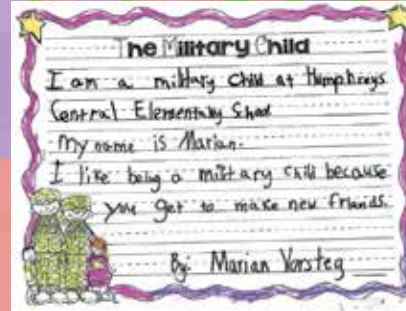 The Military Child
I am a military child at Humphreys
Central Elementary School
My name is Marian.
I like being a military child because
you get to make new friends.
By: Marian Vorsteg